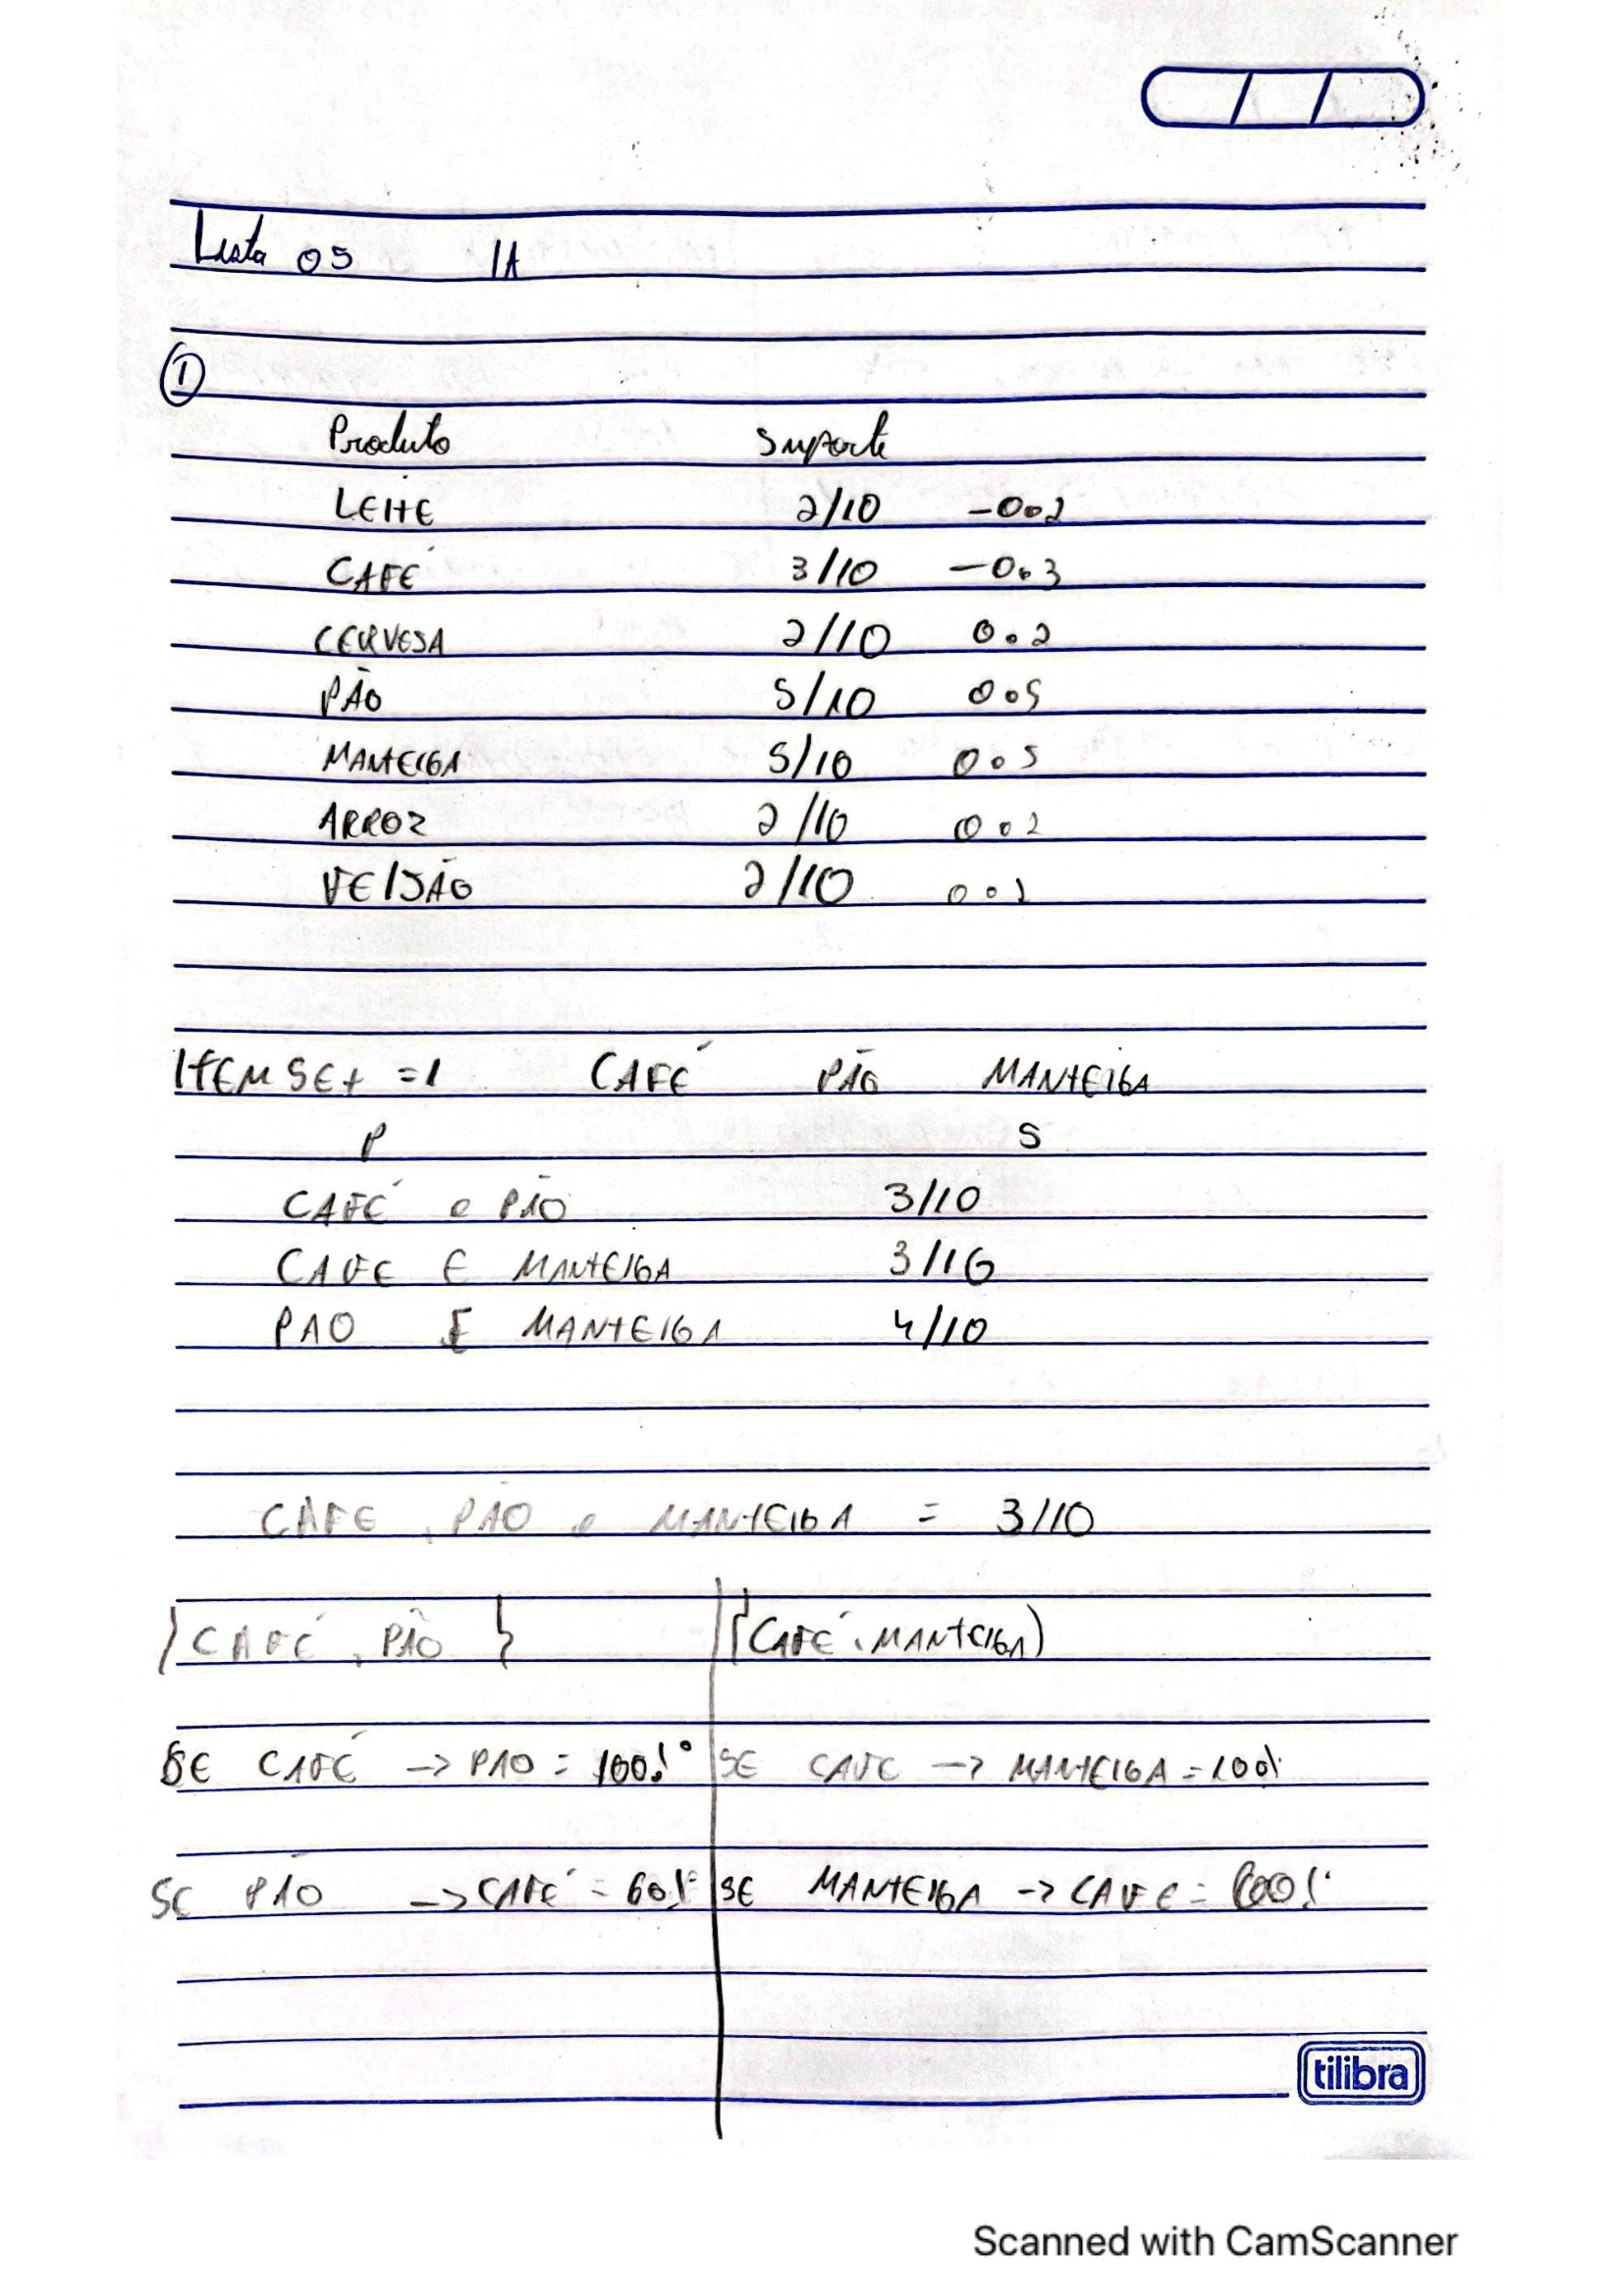 / /
Lista 05 IA
1
Produto Suporte
LEITE 2/10 -0.2
CAFÉ 3/10 -0.3
CERVESA 2/10 0.2
PÃO 5/10 0.5
MANTEIGA 5/10 0.5
ARROZ 2/10 0.2
FEIJÃO 2/10 0.2
ITEMSET =1 CAFÉ PÃO MANTEIGA
P S
CAFÉ e PÃO 3/10
CAFE E MANTEIGA 3/10
PAO E MANTEIGA 4/10
CAFE, PÃO e MANTEIGA = 3/10
{CAFÉ, PÃO} {CAFÉ, MANTEIGA)
SE CAFÉ -> PAO = 100% SE CAFE -> MANTEIGA = 100%
SE PÃO -> CAFÉ = 60% SE MANTEIGA -> CAFE = 60%
tilibra
Scanned with CamScanner